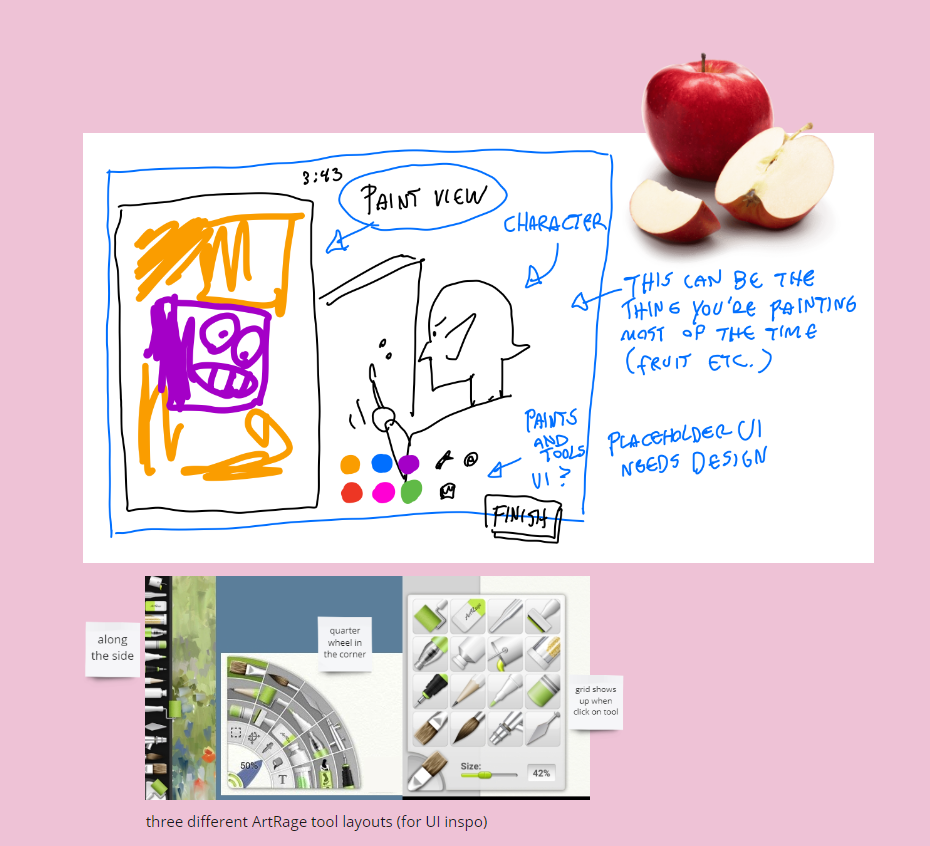 3:43
PAINT VIEW
CHARACTER
THIS CAN BE THE
THING YOU'RE PAINTING
MOST OF THE TIME
(FRUIT ETC.)
PAINTS
AND
TOOLS
UI?
PLACEHOLDER UI
NEEDS DESIGN
FINISH
along
the side
quarter
wheel in
the corner
50%
T
ArtRage
grid shows
up when
click on tool
Size:
42%
three different ArtRage tool layouts (for UI inspo)